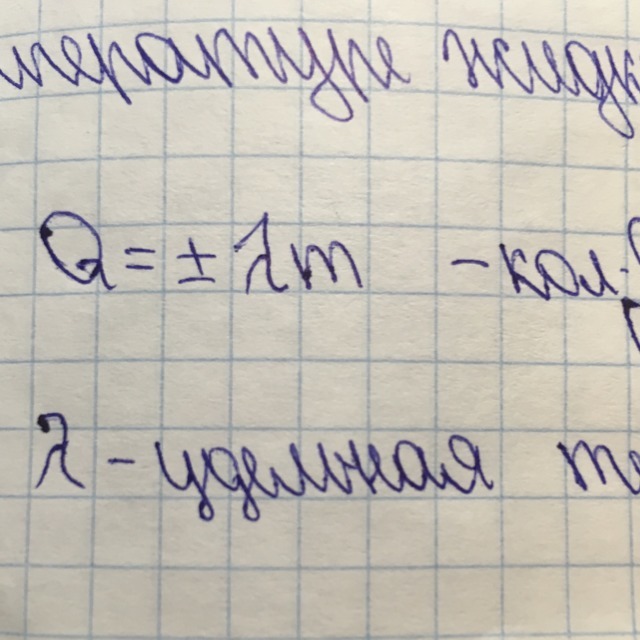 пературе жидк
Q = ± λm - кол-
λ - удельная т